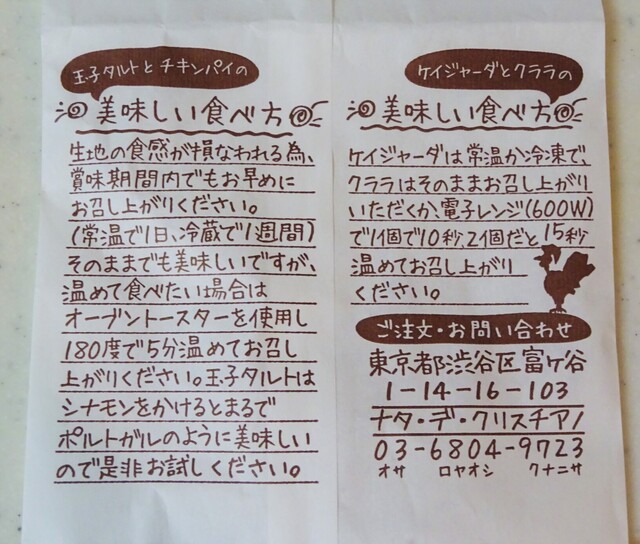 玉子タルトとチキンパイの
美味しい食べ方
生地の食感が損なわれる為、
賞味期間内でもお早めに
お召し上がりください。
(常温で1日、冷蔵で1週間)
そのままでも美味しいですが、
温めて食べたい場合は
オーブントースターを使用し
180度で5分温めてお召し
上がりください。玉子タルトは
シナモンをかけるとまるで
ポルトガルのように美味しい
ので是非お試しください。
ケイジャーダとクララの
美味しい食べ方
ケイジャーダは常温か冷凍で、
クララはそのままお召し上がり
いただくか、電子レンジ(600W)
で1個で10秒、2個だと15秒
温めてお召し上がり
ください。
ご注文・お問い合わせ
東京都渋谷区富ヶ谷
1-14-16-103
ナタ・デ・クリスチアノ
03-6804-9723
オサ ロヤオシ クナニサ